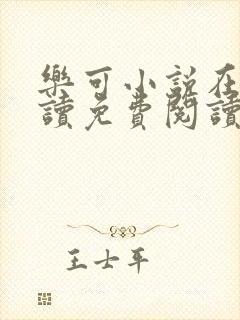 樂可小說在
讀免費閱讀
王士平